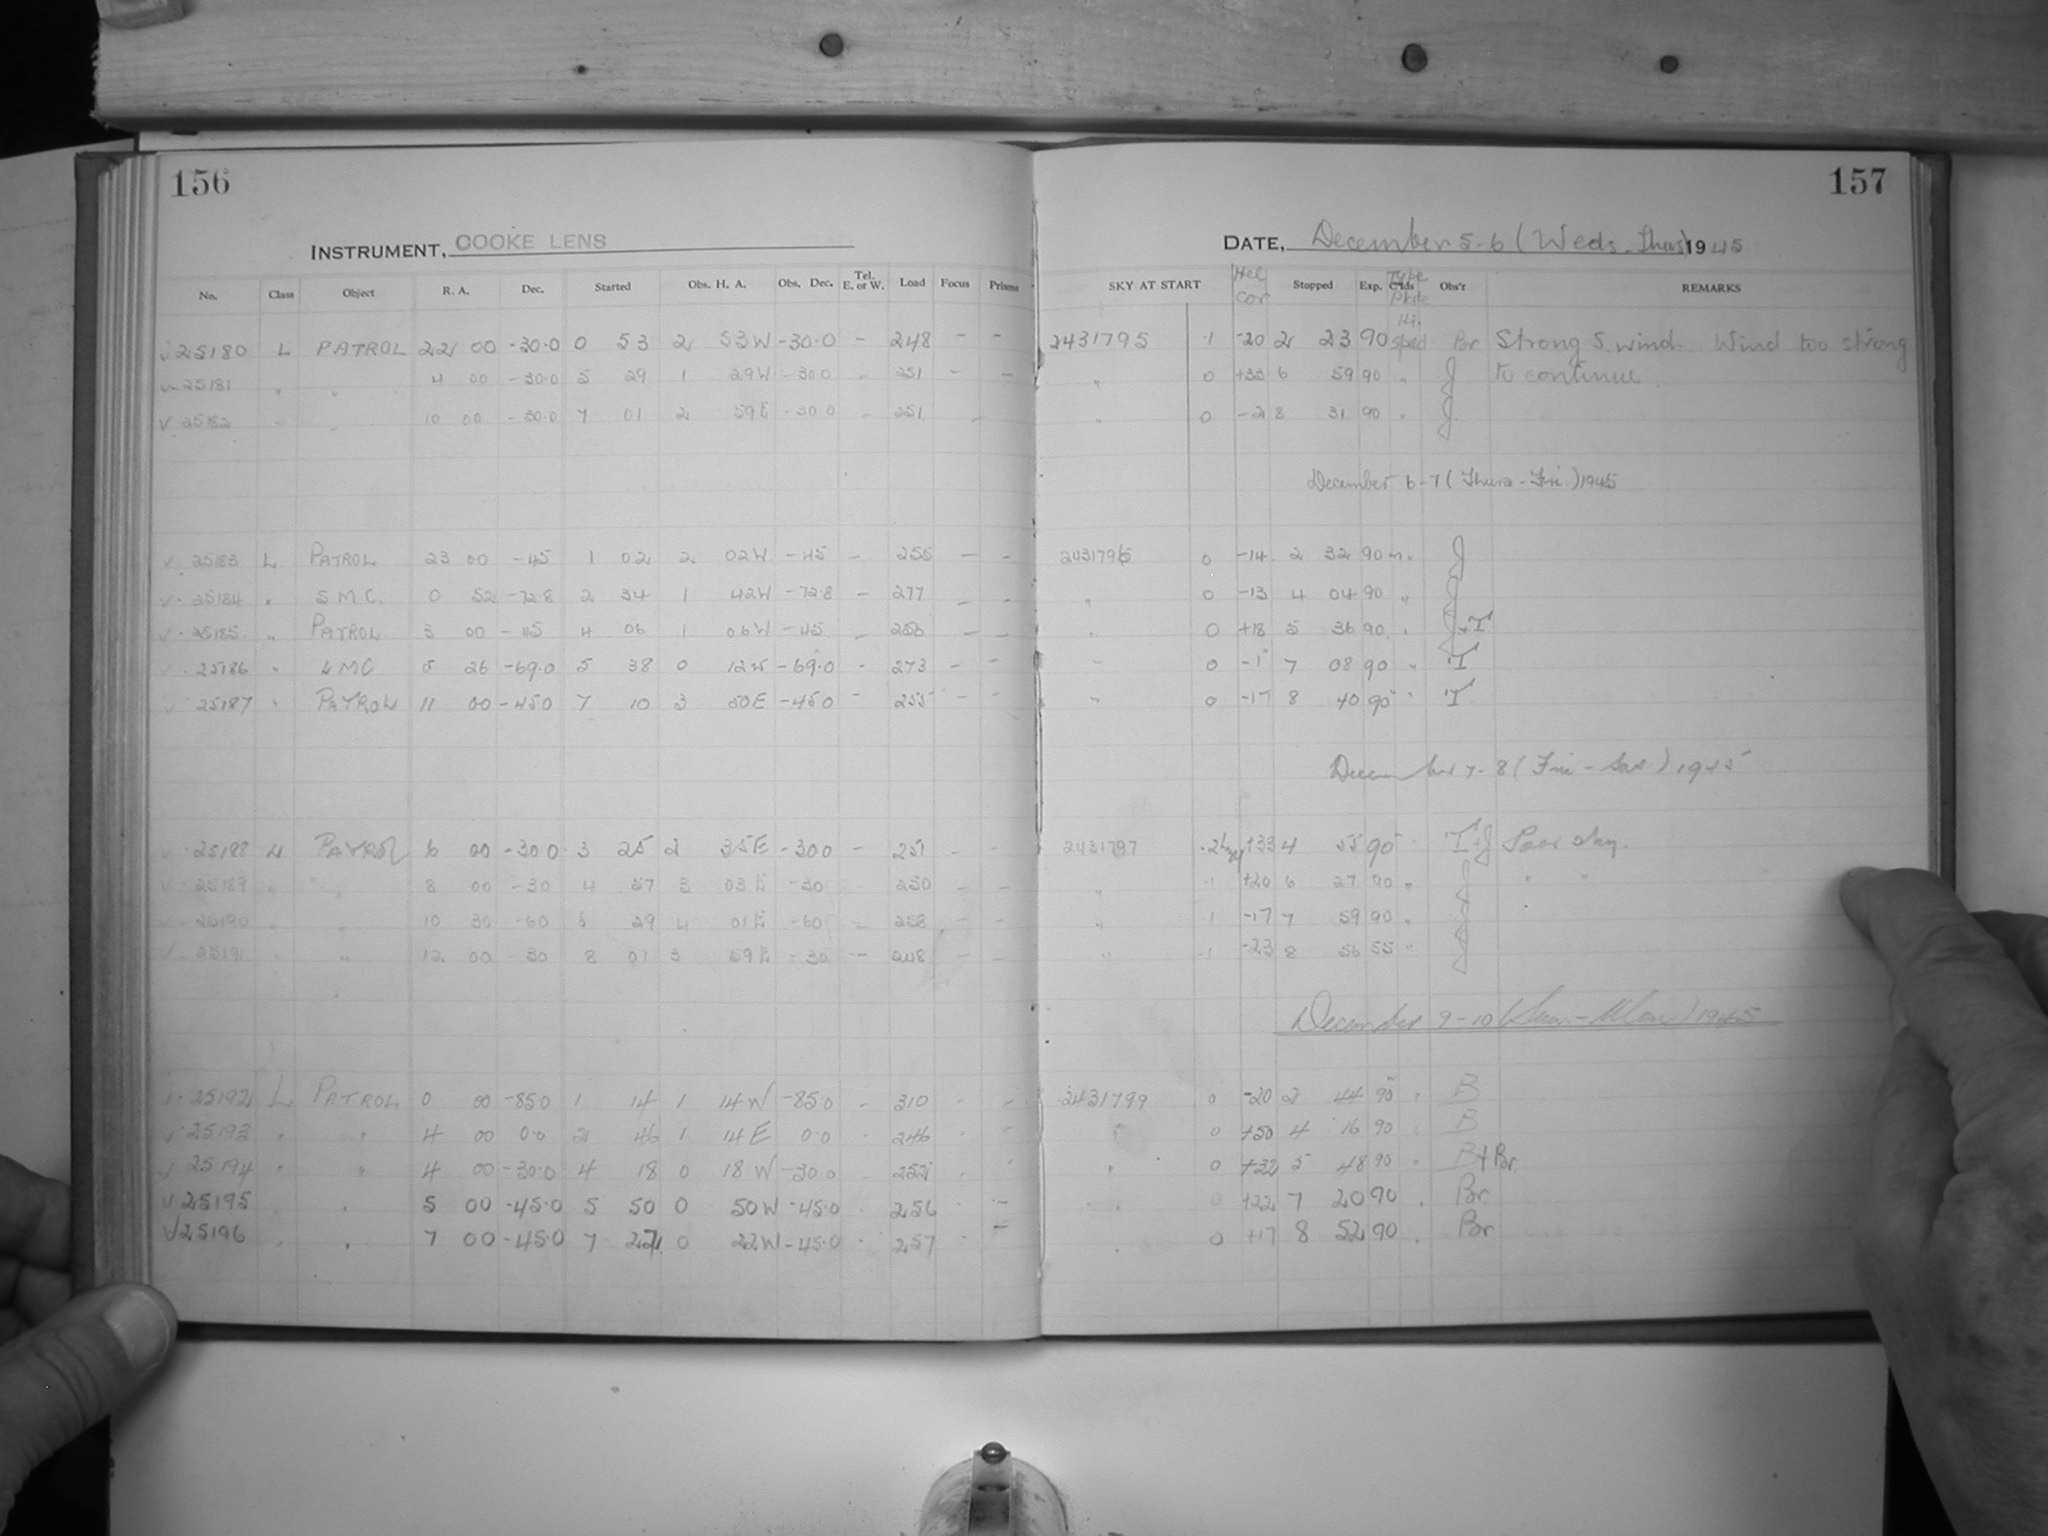 156
157
INSTRUMENT, COOKE LENS
DATE, December 5-6 (Weds-Thurs) 1945
No. Class Object R. A. Dec. Started Obs. H. A. Obs. Dec. Tel. E. or W. Load Focus Prisms SKY AT START Hel Cor Stopped Exp. Type Plate Obs'r REMARKS
√25180 L PATROL 22 00 -30.0 0 53 2 53W -30.0 - 248 - - 2431795 .1 -20 2 23 90 Hi. Speed Br Strong S. wind. Wind too strong
√25181 " " 4 00 -30.0 5 29 1 29W -30.0 - 251 - - " 0 +33 6 59 90 " J to continue.
√25182 " " 10 00 -30.0 7 01 2 59E -30.0 - 251 - " 0 -2 8 31 90 " J
December 6-7 (Thurs-Fri) 1945
√25183 L PATROL 23 00 -45 1 02 2 02W -45 - 255 - - 2431796 0 -14 2 32 90 " J
√25184 " SMC. 0 52 -72.8 2 34 1 42W -72.8 - 277 - - " 0 -13 4 04 90 " J
√25185 " PATROL 3 00 -45 4 06 1 06W -45 - 256 - - " 0 +18 5 36 90 " J+T
√25186 " LMC 5 26 -69.0 5 38 0 12W -69.0 - 273 - - " 0 -1 7 08 90 " T
√25187 " PATROL 11 00 -45.0 7 10 3 50E -45.0 - 255 - - " 0 -17 8 40 90 " T
December 7-8 (Fri-Sat) 1945
√25188 L PATROL 6 00 -30.0 3 25 2 35E -30.0 - 251 - - 2431797 .2 +33 4 55 90 " T+J Poor sky.
√25189 " " 8 00 -30 4 57 3 03E -30 - 250 - - " .1 +20 6 27 90 " J " "
√25190 " " 10 30 -60 6 29 4 01E -60 - 258 - - " 1 -17 7 59 90 " J
√25191 " " 12 00 -30 8 01 3 59E -30 - 248 - - " .1 -23 8 56 55 " J
December 9-10 (Sun.-Mon) 1945
√25192 L PATROL 0 00 -85.0 1 14 1 14W -85.0 - 310 - - 2431799 0 -20 2 44 90 " B
√25193 " " 4 00 0.0 2 46 1 14E 0.0 - 246 - - " 0 +50 4 16 90 " B
√25194 " " 4 00 -30.0 4 18 0 18W -30.0 - 252 - - " 0 +32 5 48 90 " B+Br.
√25195 " " 5 00 -45.0 5 50 0 50W -45.0 - 256 - - " 0 +22 7 20 90 " Br.
√25196 " " 7 00 -45.0 7 22 0 22W -45.0 - 257 - - " 0 +17 8 52 90 " Br